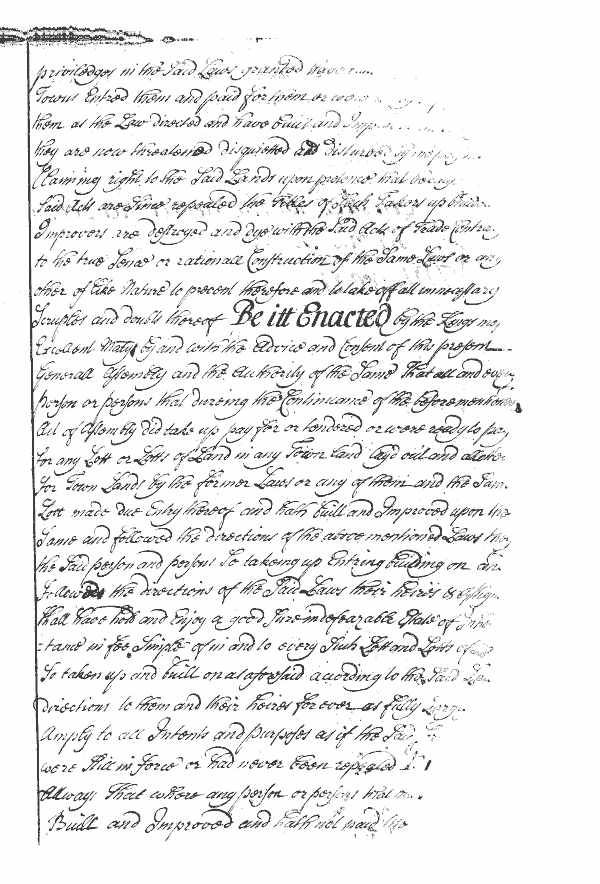 priviledges in the Said Laws granted have
Towns Entred them and paid for them or
them as the Law directed and have built and
they are now threatened disquieted and disturbed
Claiming right to the Said Lands upon pretence that
Said Acts are Since repealed the titles of Such Takers up
Improvers are destroyed and dye with the Said Acts of Trade
to the true Sense or rationall Construction of the Same Laws or any
other of like Nature to prevent therefore and to take off all unnecessary
Scruples and doubts thereof Be itt Enacted by the Kings
Excellent Maty by and with the Advice and Consent of this present
Generall Assembly and the Authority of the Same That all and every
person or persons that dureing the Continuance of the beforementioned
Act of Assembly did take up pay for or tendered or were ready to pay
for any Lott or Lotts of Land in any Town Land layd out and
for Town Lands by the former Laws or any of them and the Same
Lott made due Entry thereof and hath built and Improved upon the
Same and followed the directions of the above mentioned Laws
the Said person and persons So takeing up Entring building on
the directions of the Said Laws their heires &
shall have hold and Enjoy a good Sure indefeazable Estate of
-tance in fee Simple of in and to every Such Lott and Lotts of
So taken up and built on as aforesaid according to the Said
directions to them and their heires for ever as fully
Amply to all Intents and purposes as if the Said
were Still in force or had never been repealed
Allways That where any person or persons that
Built and Improved and hath not paid the